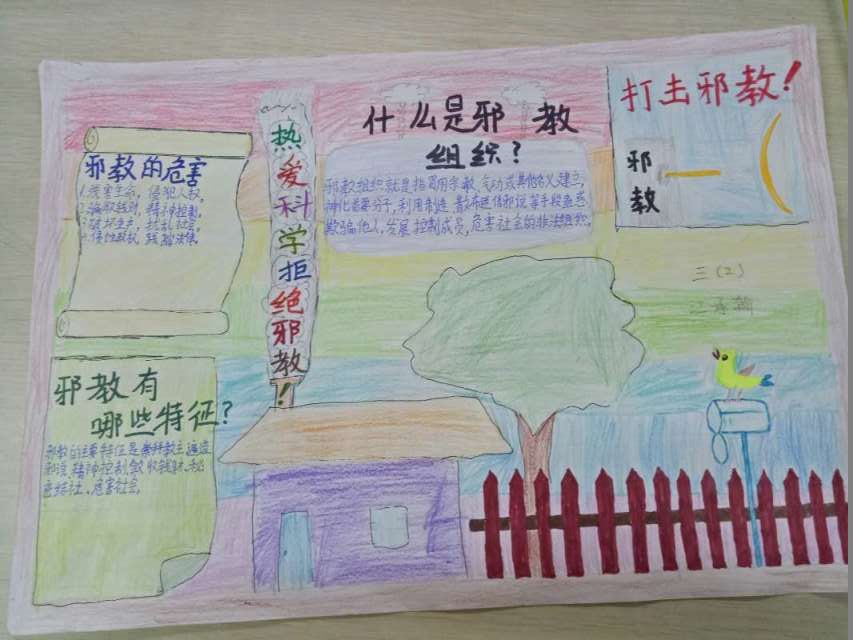 邪教的危害
1.残害生命,侵犯人权,
2.骗取钱财,精神控制,
3.破坏生产,扰乱社会,
4.侵蚀政权,践踏法律.
热爱科学拒绝邪教!
什么是邪教
组织?
邪教组织就是指冒用宗教、气功或其他名义建立,
神化首要分子,利用制造、散布迷信邪说等手段蛊惑
欺骗他人,发展控制成员,危害社会的非法组织.
打击邪教!
邪
教
三(2)
邪教有
哪些特征?
邪教的主要特征是崇拜教主、编造
邪说、精神控制、敛收钱财、秘
密结社、危害社会.